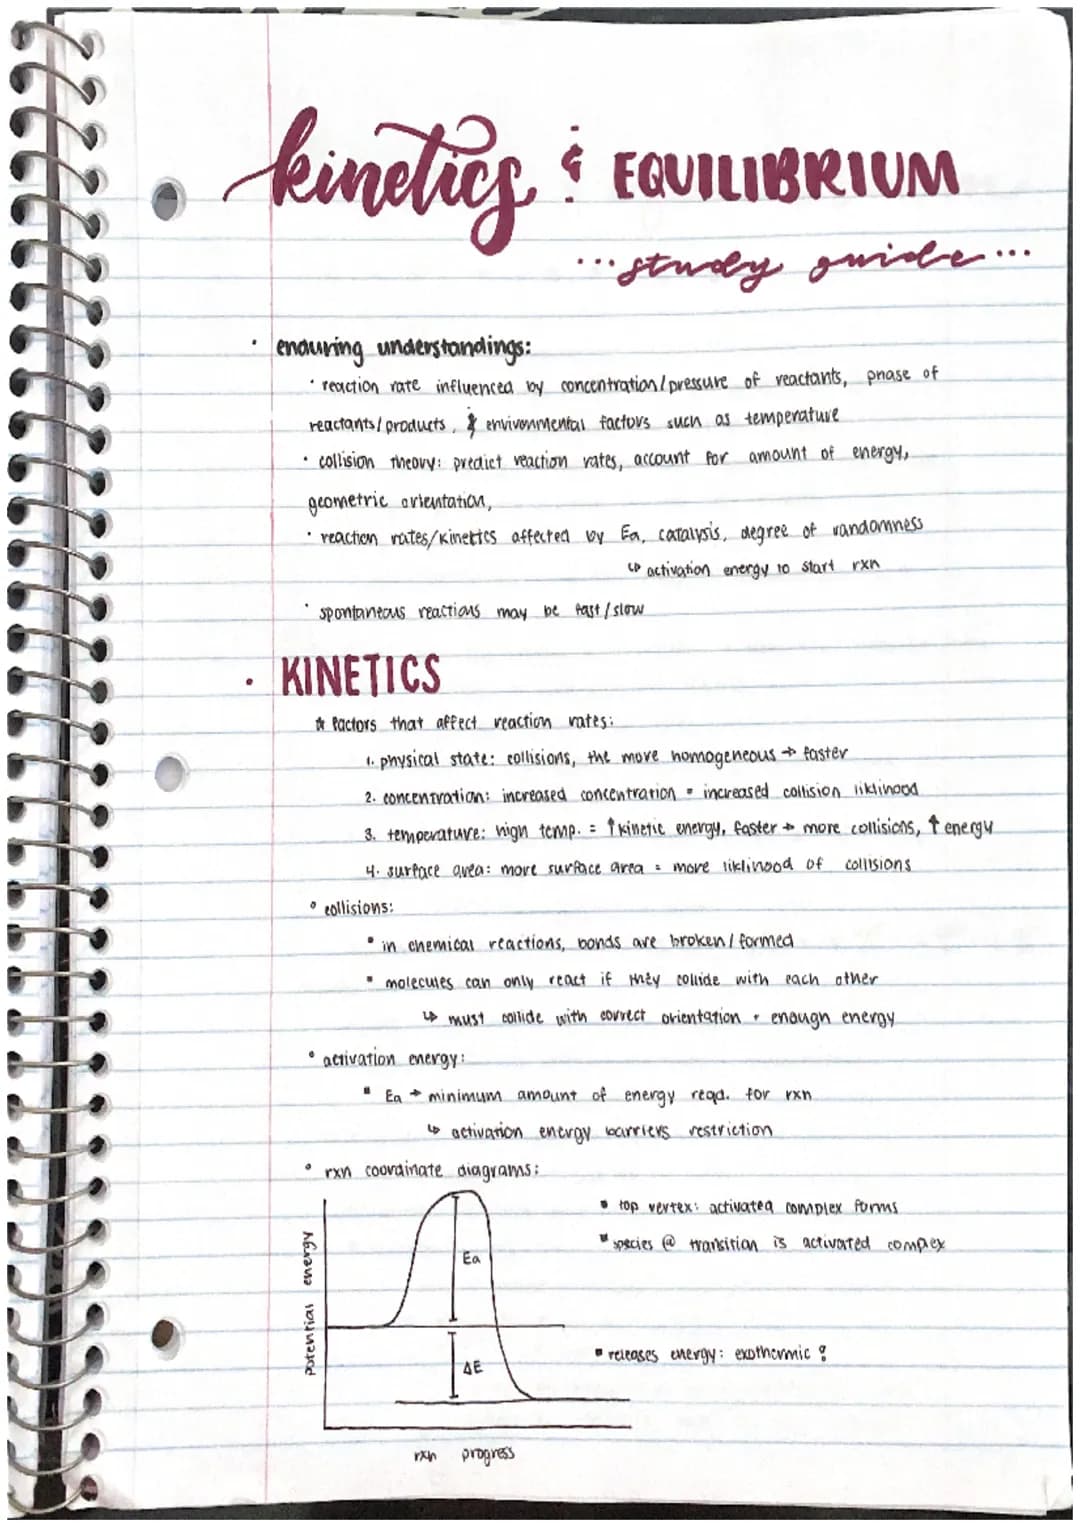 kinetics & EQUILIBRIUM
...study guide...
• enduring understandings:
• reaction rate influenced by concentration/pressure of reactants, phase of
reactants/products, & environmental factors such as temperature
• collision theory: predict reaction rates, account for amount of energy,
geometric orientation,
• reaction rates/kinetics affected by Ea, catalysis, degree of randomness
↳ activation energy to start rxn
• spontaneous reactions may be fast/slow
• KINETICS
☆ factors that affect reaction rates:
1. physical state: collisions, the more homogeneous → faster
2. concentration: increased concentration = increased collision liklihood
3. temperature: high temp. = ↑ kinetic energy, faster → more collisions, ↑ energy
4. surface area: more surface area = more liklihood of collisions
• collisions:
▪ in chemical reactions, bonds are broken/formed
▪ molecules can only react if they collide with each other
↳ must collide with correct orientation + enough energy
• activation energy:
▪ Ea → minimum amount of energy reqd. for rxn
↳ activation energy barriers restriction
• rxn coordinate diagrams:
▪ top vertex: activated complex forms
▪ species @ transition is activated complex
potential energy
Ea
ΔE
▪ releases energy: exothermic !
rxn progress